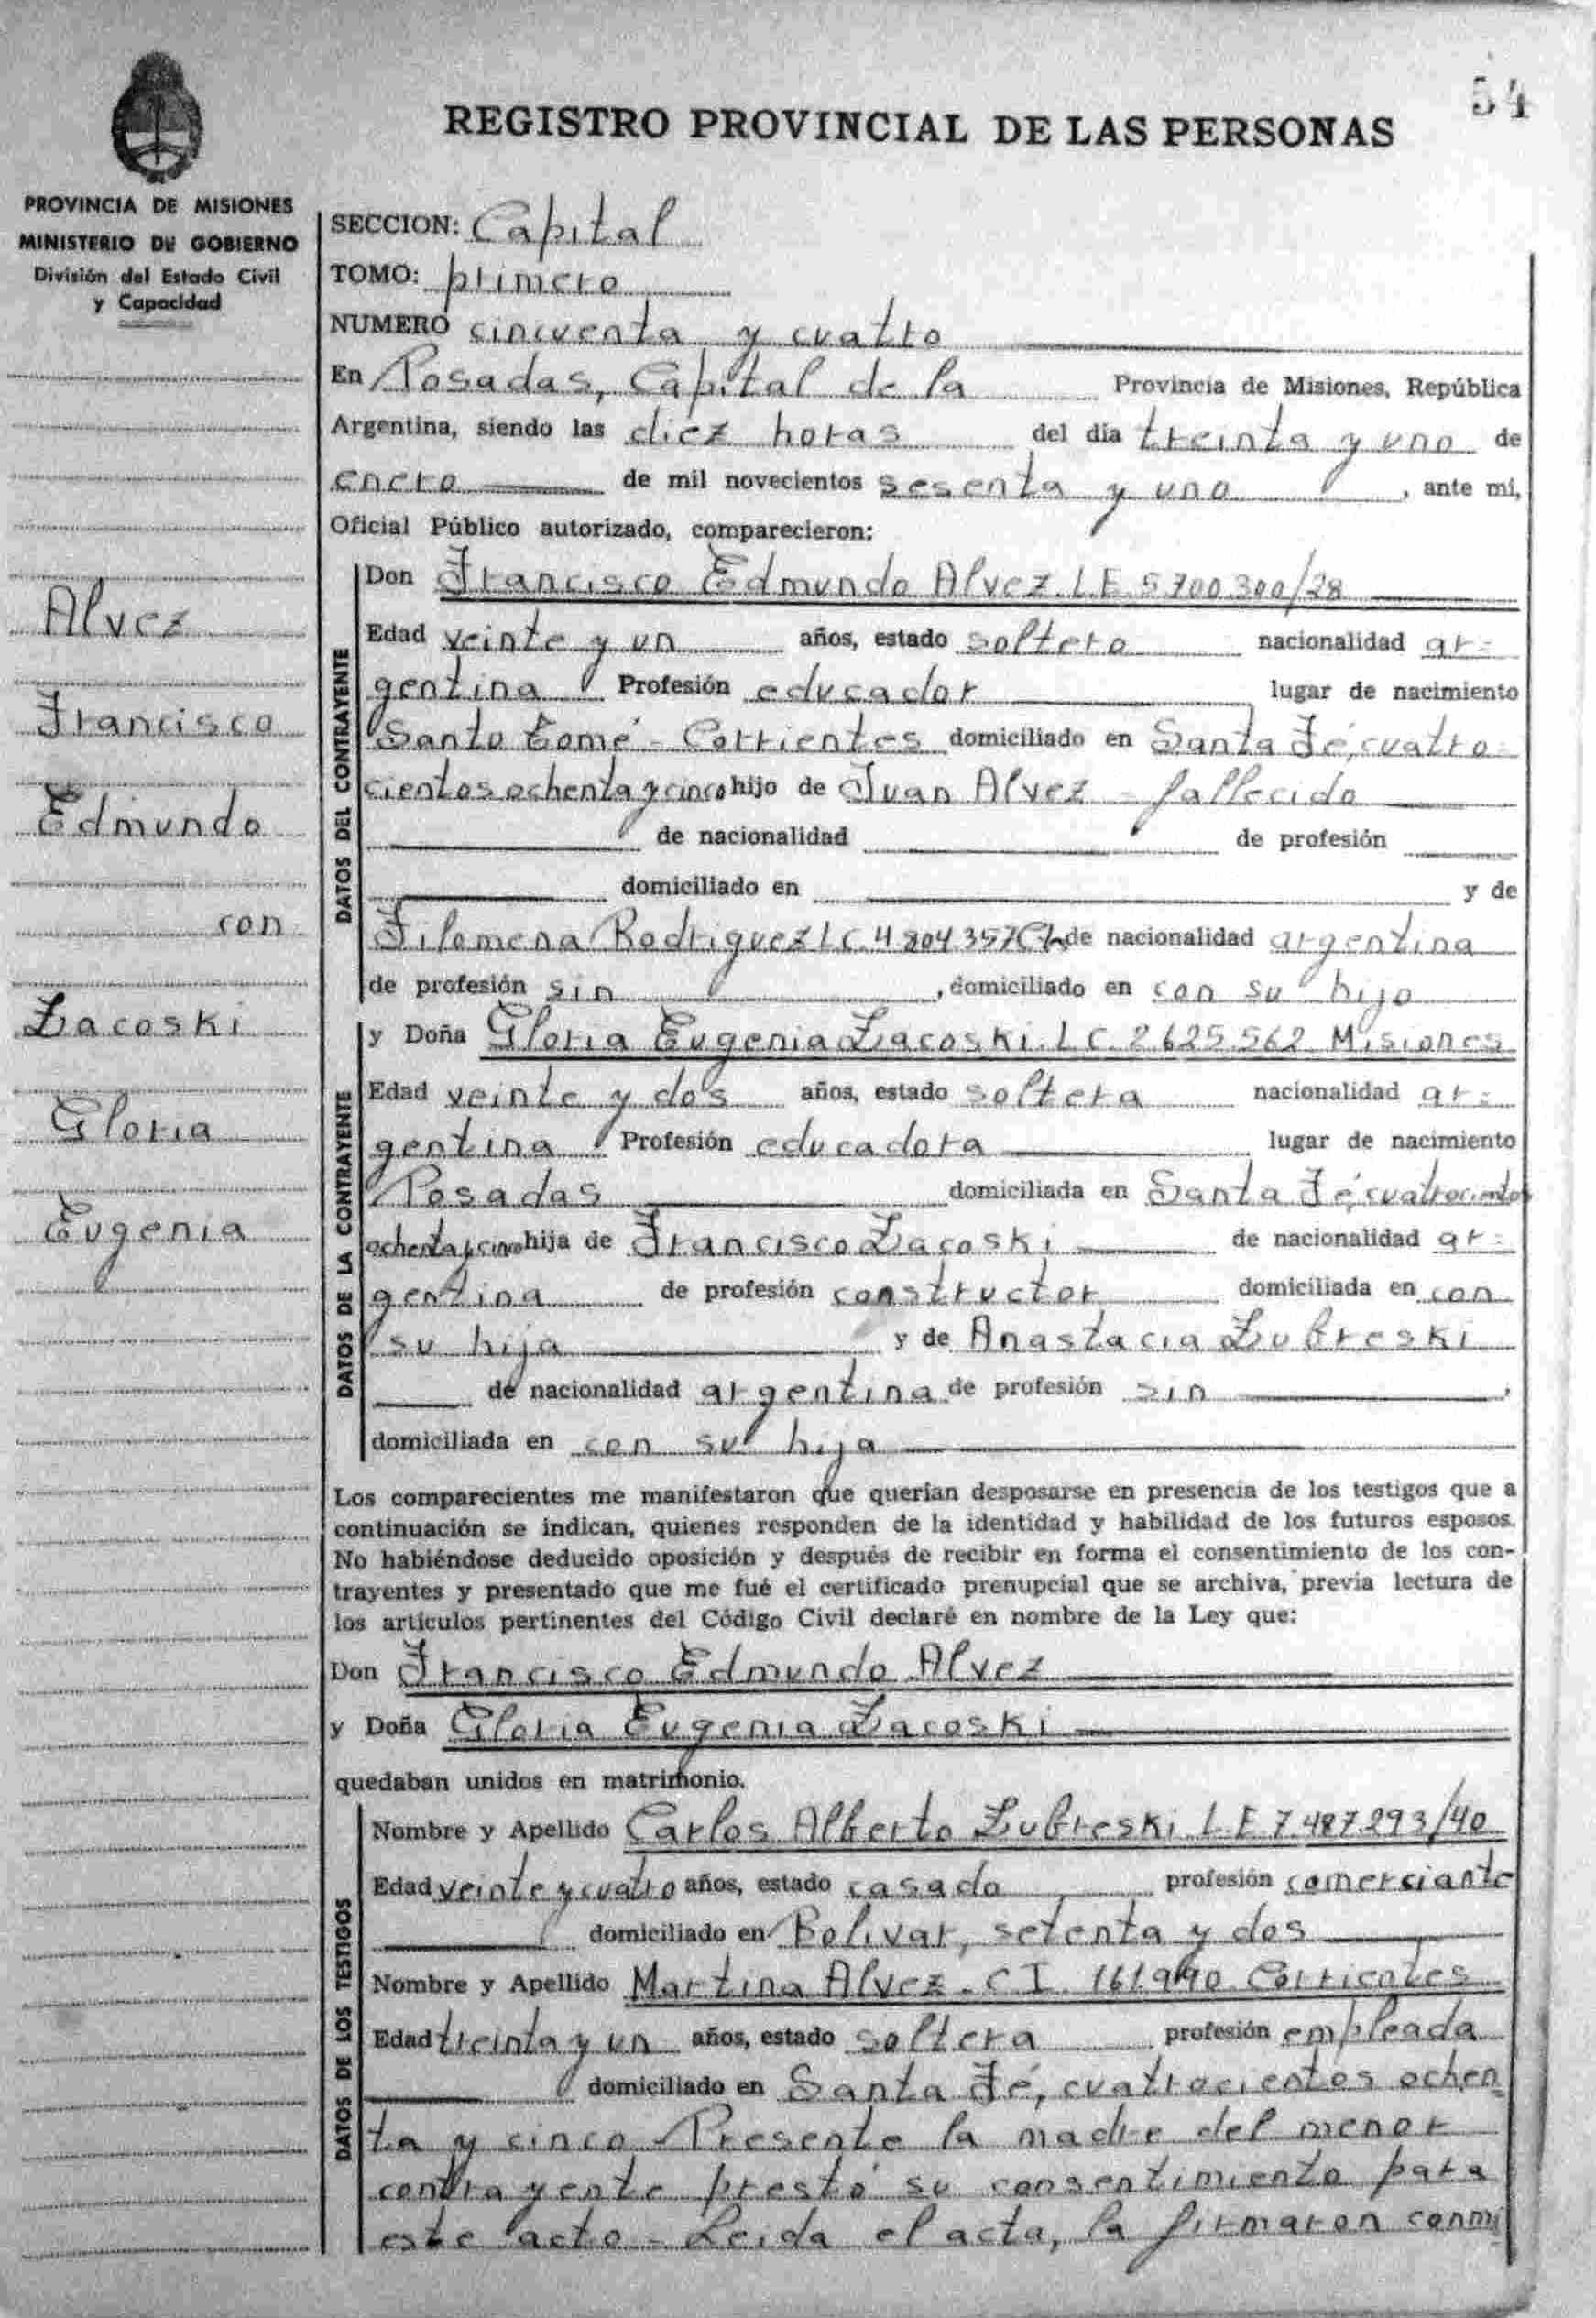 54
REGISTRO PROVINCIAL DE LAS PERSONAS
PROVINCIA DE MISIONES
MINISTERIO DE GOBIERNO
División del Estado Civil
y Capacidad
Alvez
Francisco
Edmundo
con
Zacoski
Gloria
Eugenia
SECCION: Capital
TOMO: primero
NUMERO cincuenta y cuatro
En Posadas, Capital de la Provincia de Misiones, República
Argentina, siendo las diez horas del día treinta y uno de
enero de mil novecientos sesenta y uno, ante mí,
Oficial Público autorizado, comparecieron:
DATOS DEL CONTRAYENTE
Don Francisco Edmundo Alvez. L.E. 5.700.300/38
Edad veinte y un años, estado soltero nacionalidad ar=
gentina Profesión educador lugar de nacimiento
Santo Tomé - Corrientes domiciliado en Santa Fé, cuatro-
cientos ochenta y cinco hijo de Juan Alvez - fallecido
de nacionalidad de profesión
domiciliado en y de
Filomena Rodriguez LC. 4.804.357 de nacionalidad argentina
de profesión sin, domiciliado en con su hijo
DATOS DE LA CONTRAYENTE
y Doña Gloria Eugenia Zacoski. L.C. 2.625.562 Misiones
Edad veinte y dos años, estado soltera nacionalidad ar=
gentina Profesión educadora lugar de nacimiento
Posadas domiciliada en Santa Fé, cuatrocientos
ochenta y cinco hija de Francisco Zacoski de nacionalidad ar=
gentina de profesión constructor domiciliada en con
su hija y de Anastacia Zubreski
de nacionalidad argentina de profesión sin,
domiciliada en con su hija
Los comparecientes me manifestaron que querían desposarse en presencia de los testigos que a
continuación se indican, quienes responden de la identidad y habilidad de los futuros esposos.
No habiéndose deducido oposición y después de recibir en forma el consentimiento de los con-
trayentes y presentado que me fué el certificado prenupcial que se archiva, previa lectura de
los artículos pertinentes del Código Civil declaré en nombre de la Ley que:
Don Francisco Edmundo Alvez
y Doña Gloria Eugenia Zacoski
quedaban unidos en matrimonio.
DATOS DE LOS TESTIGOS
Nombre y Apellido Carlos Alberto Zubreski L.E. 7.487.293/40
Edad veinte y cuatro años, estado casado profesión comerciante
domiciliado en Bolivar, setenta y dos
Nombre y Apellido Martina Alvez - C.I. 161.990 Corrientes
Edad treinta y un años, estado soltera profesión empleada
domiciliado en Santa Fé, cuatrocientos ochen
ta y cinco - Presente la madre del menor
contrayente prestó su consentimiento para
este acto - Leida el acta, la firmaron conmi